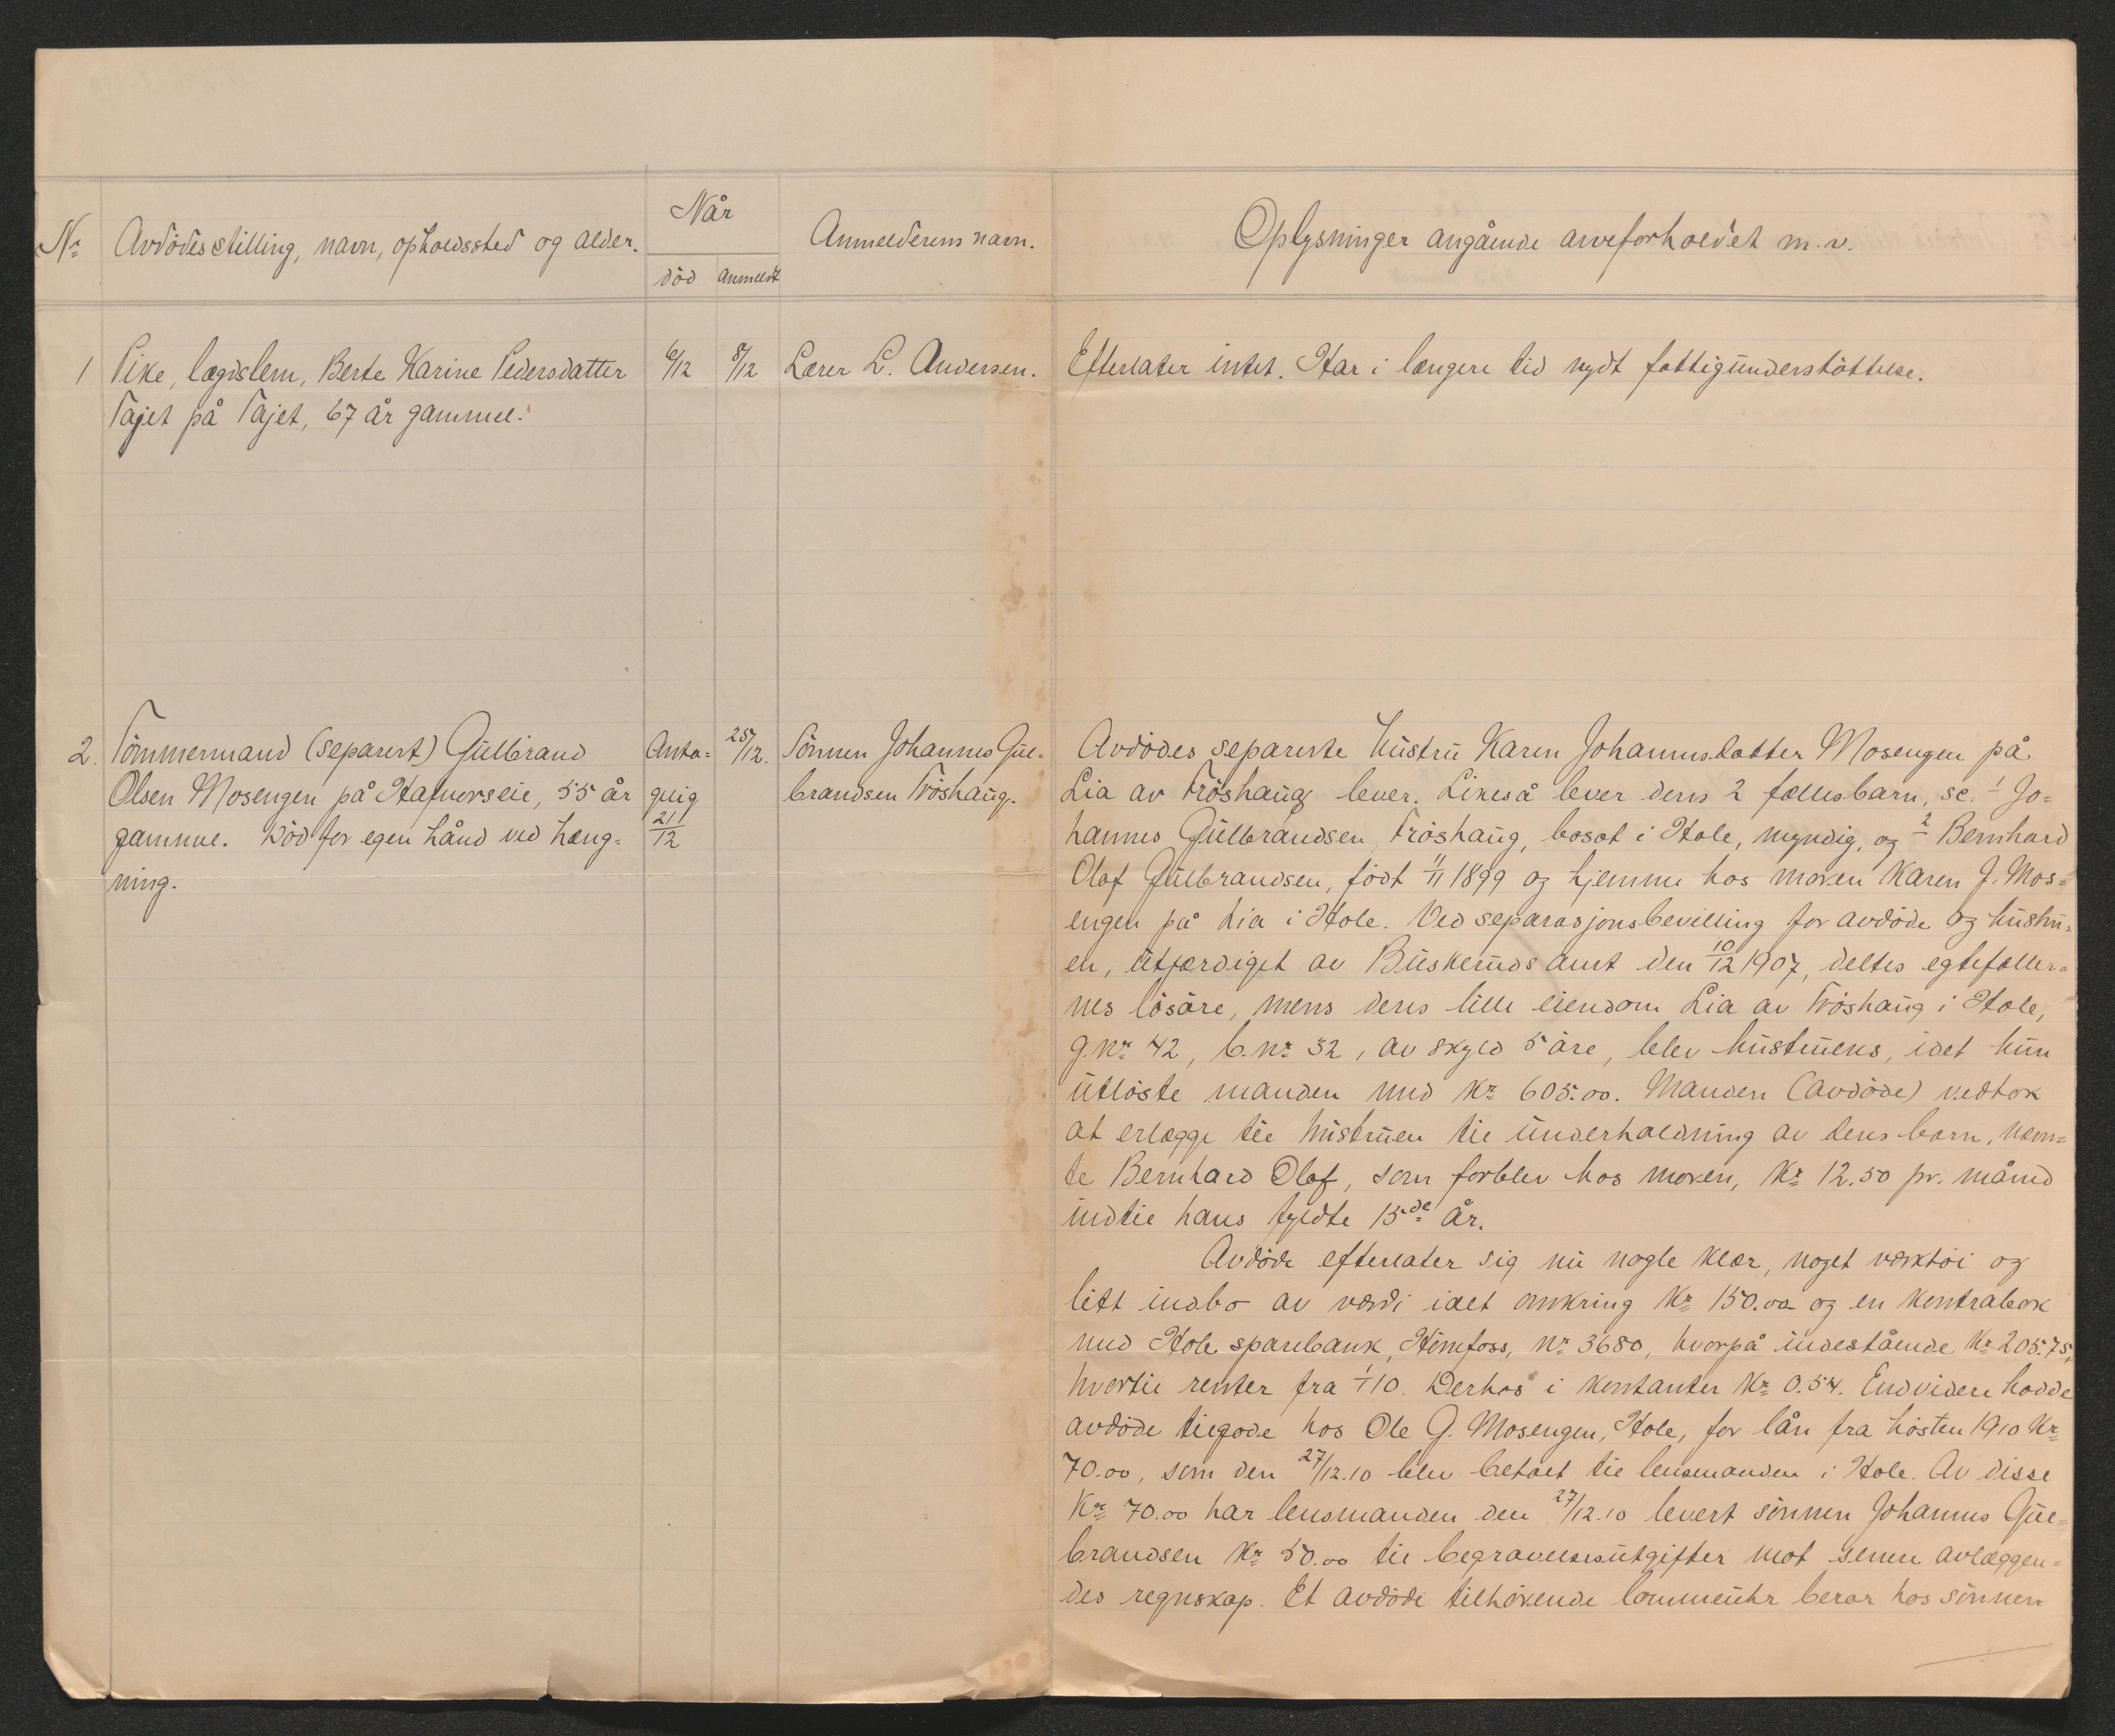 Nr.
Avdödes stilling, navn, opholdssted og alder.
Når
död
anmeldt
Anmelderens navn.
Oplysninger angående arveforholdet m.v.
1
Pike, lægdslem, Berte Karine Pedersdatter
Tajet på Tajet, 67 år gammel.
6/12
8/12
Lærer L. Andersen.
Efterlater intet. Har i længere tid nydt fattigunderstöttelse.
2.
Tömmermand (separert) Gulbrand
Olsen Mosengen på Hafnorseie, 55 år
gammel. Död for egen hånd ved hæng=
ning.
Anta=
gelig
21/12
28/12.
Sönnen Johannes Gul=
brandsen Fröshaug.
Avdödes separerte hustru Karen Johannesdatter Mosengen på
Lia av Fröshaug lever. Likeså lever deres 2 fællesbarn, sc. 1 Jo=
hannes Gulbrandsen Fröshaug, bosat i Hole, myndig, og 2 Bernhard
Olaf Gulbrandsen, födt 11/11 1899 og hjemme hos moren Karen J. Mos=
engen på Lia i Hole. Ved separasjonsbevilling for avdöde og hustru=
en, utfærdiget av Buskeruds amt den 10/12 1907, deltes egtefæller=
nes lösöre, mens deres lille eiendom Lia av Fröshaug i Hole,
g.nr. 42, b.nr. 32, av skyld 5 öre, blev hustruens, idet hun
utlöste manden med Kr. 605.00. Manden (avdöde) vedtok
at erlægge til hustruen til underholdning av deres barn, nævn=
te Bernhard Olaf, som forblev hos moren, Kr. 12.50 pr. måned
indtil hans fyldte 15de år.
Avdöde efterlater sig nu nogle klær, noget værktöi og
litt indbo av værdi ialt omkring Kr. 150.00 og en kontrabok
med Hole sparebank, Hönefoss, nr. 3680, hvorpå indestående Kr. 205.75,
hvortil renter fra 1/1 10. Derhos i kontanter Kr. 0.54. Endvidere hadde
avdöde tilgode hos Ole G. Mosengen, Hole, for lån fra hösten 1910 Kr.
70.00, som den 27/12.10 blev betalt til lensmanden i Hole. Av disse
Kr. 70.00 har lensmanden den 27/12.10 levert sönnen Johannes Gul=
brandsen Kr. 50.00 til begravelsesutgifter mot senere avlæggen=
des regnskap. Et avdöde tilhörende lommeuhr beror hos sönnen